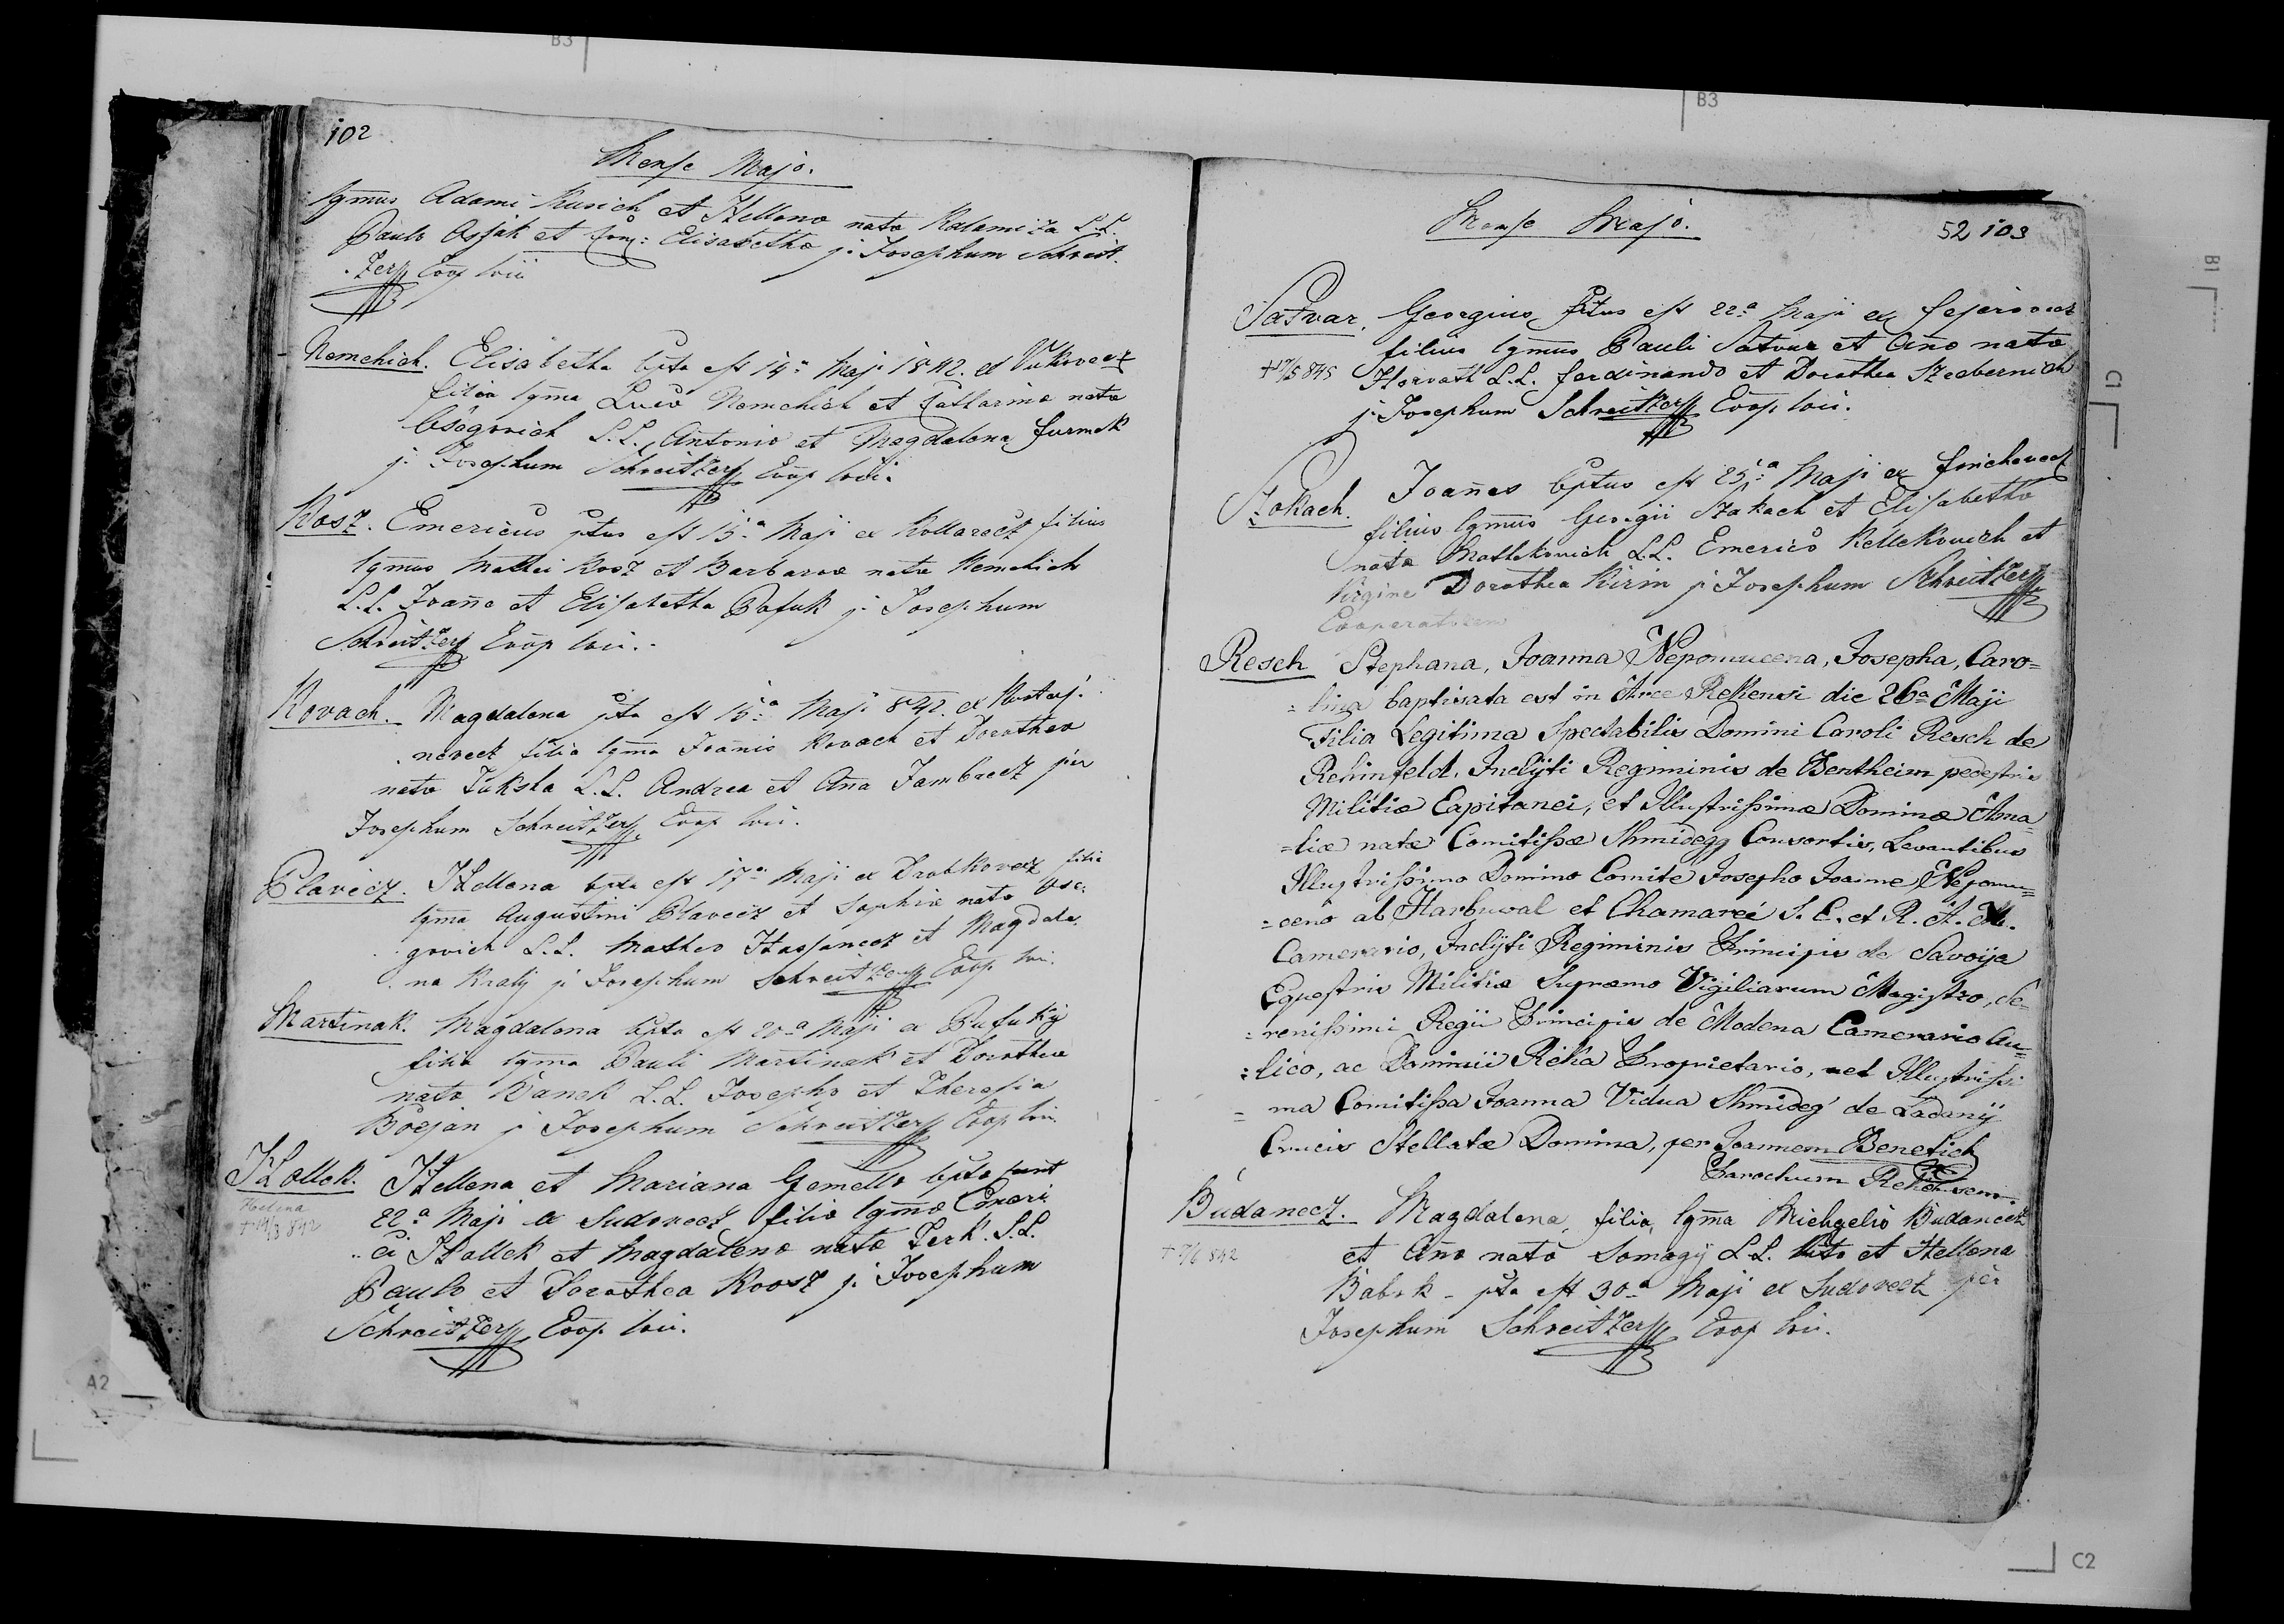 B3
B3
102
Mense Majo.
Lgmus Adami Kusich et Hellenæ natæ Kalamiza L.L.
Paulo et Conj: Elisabetha p. Josephum Schreit-
zer Coop loci
Nemchich. Elisabetha bpta est 14a Maji 1842. ex Vukovecz
filia lgma Lucæ Nemchich et Catharinæ natæ
L.L. Antonio et Magdalena Furmek
p. Josephum Schreitzer Coop loci.
Kosz. Emericus ptus est 15a Maji ex Kollarecz filius
lgmus Mathei Kosz et Barbaræ natæ Nemchich
L.L. Joane et Elisabetha Pafuk p. Josephum
Schreitzer Coop loci.
Kovach. Magdalena pta est 15a Maji 842. ex
novecz filia lgma Joanis Kovach et Dorotheæ
natæ Juksha L.L. Andrea et Ana Jambrecz per
Josephum Schreitzer Coop loci.
Plavecz. Hellena bpta est 17a Maji ex Drobkovecz filia
lgma Augustini Plavecz et Sophiæ natæ
govich L.L. Matheo et Magdale-
na Kralij p Josephum Schreitzer Coop loci.
Martinak. Magdalena bpta est 20a Maji ex
filia lgma Pauli Martinak et Dorotheæ
natæ Banek L.L. Josepho et Theresia
p Josephum Schreitzer Coop loci.
Hallek. Hellena et Mariana Gemellæ bptæ sunt
Helena
22a Maji ex Sudovecz filiæ lgmæ Emeri
842
ci Hallek et Magdalenæ natæ Jerk. L.L.
Paulo et Dorothea Koosz p. Josephum
Schreitzer Coop loci.
Mense Majo.
52 103
Satvar. Georgius ptus est 22a Maji ex
filius lgmus Pauli Satvar et Anæ natæ
845 Horvath L.L. Ferdinando et Dorothea
p. Josephum Schreitzer Coop loci.
Joanes bptus est 25a Maji ex
filius lgmus Georgii et Elisabethæ
natæ Mathekovich L.L. Emerico Kellekovich et
Virgine Dorothea Kirin p Josephum Schreitzer
Cooperatorem
Resch Stephana, Joanna Nepomucena, Josepha, Caro=
=lina baptisata est in Arce Rekensi die 26a Maji
Filia Legitima Spectabilis Domini Caroli Resch de
Inclÿti Regiminis de Bentheim pedestris
Militiæ Capitanei, et Illustrissimæ Dominæ Ama=
=liæ natæ Comitissæ Shmidegg Consortis, Levantibus
Illustrissimo Domino Comite Josepho Joanne Nepomu=
=ceno ab Harbuval et Chamareé S. C. et R. A. M.
Camerario, Inclÿti Regiminis Principis de Savoÿa
Equestris Militiæ Supremo Vigiliarum Magistro, Se=
=renissimi Regii Principis de Modena Camerario Au=
=lico, ac Dominii Réka Proprietario, et Illustrissi
=ma Comitissa Joanna Vidua Shmideg de Ladanÿ
Crucis Stellatæ Domina, per Joannem Benetich
Parochum Rekensem.
Budanecz. Magdalena, filia, lgma Budanecz
842
et Anæ natæ Somagÿ L.L. et Hellena
Babok pta est 30a Maji ex Sudovecz per
Josephum Schreitzer Coop loci.
B1
C1
A2
C2